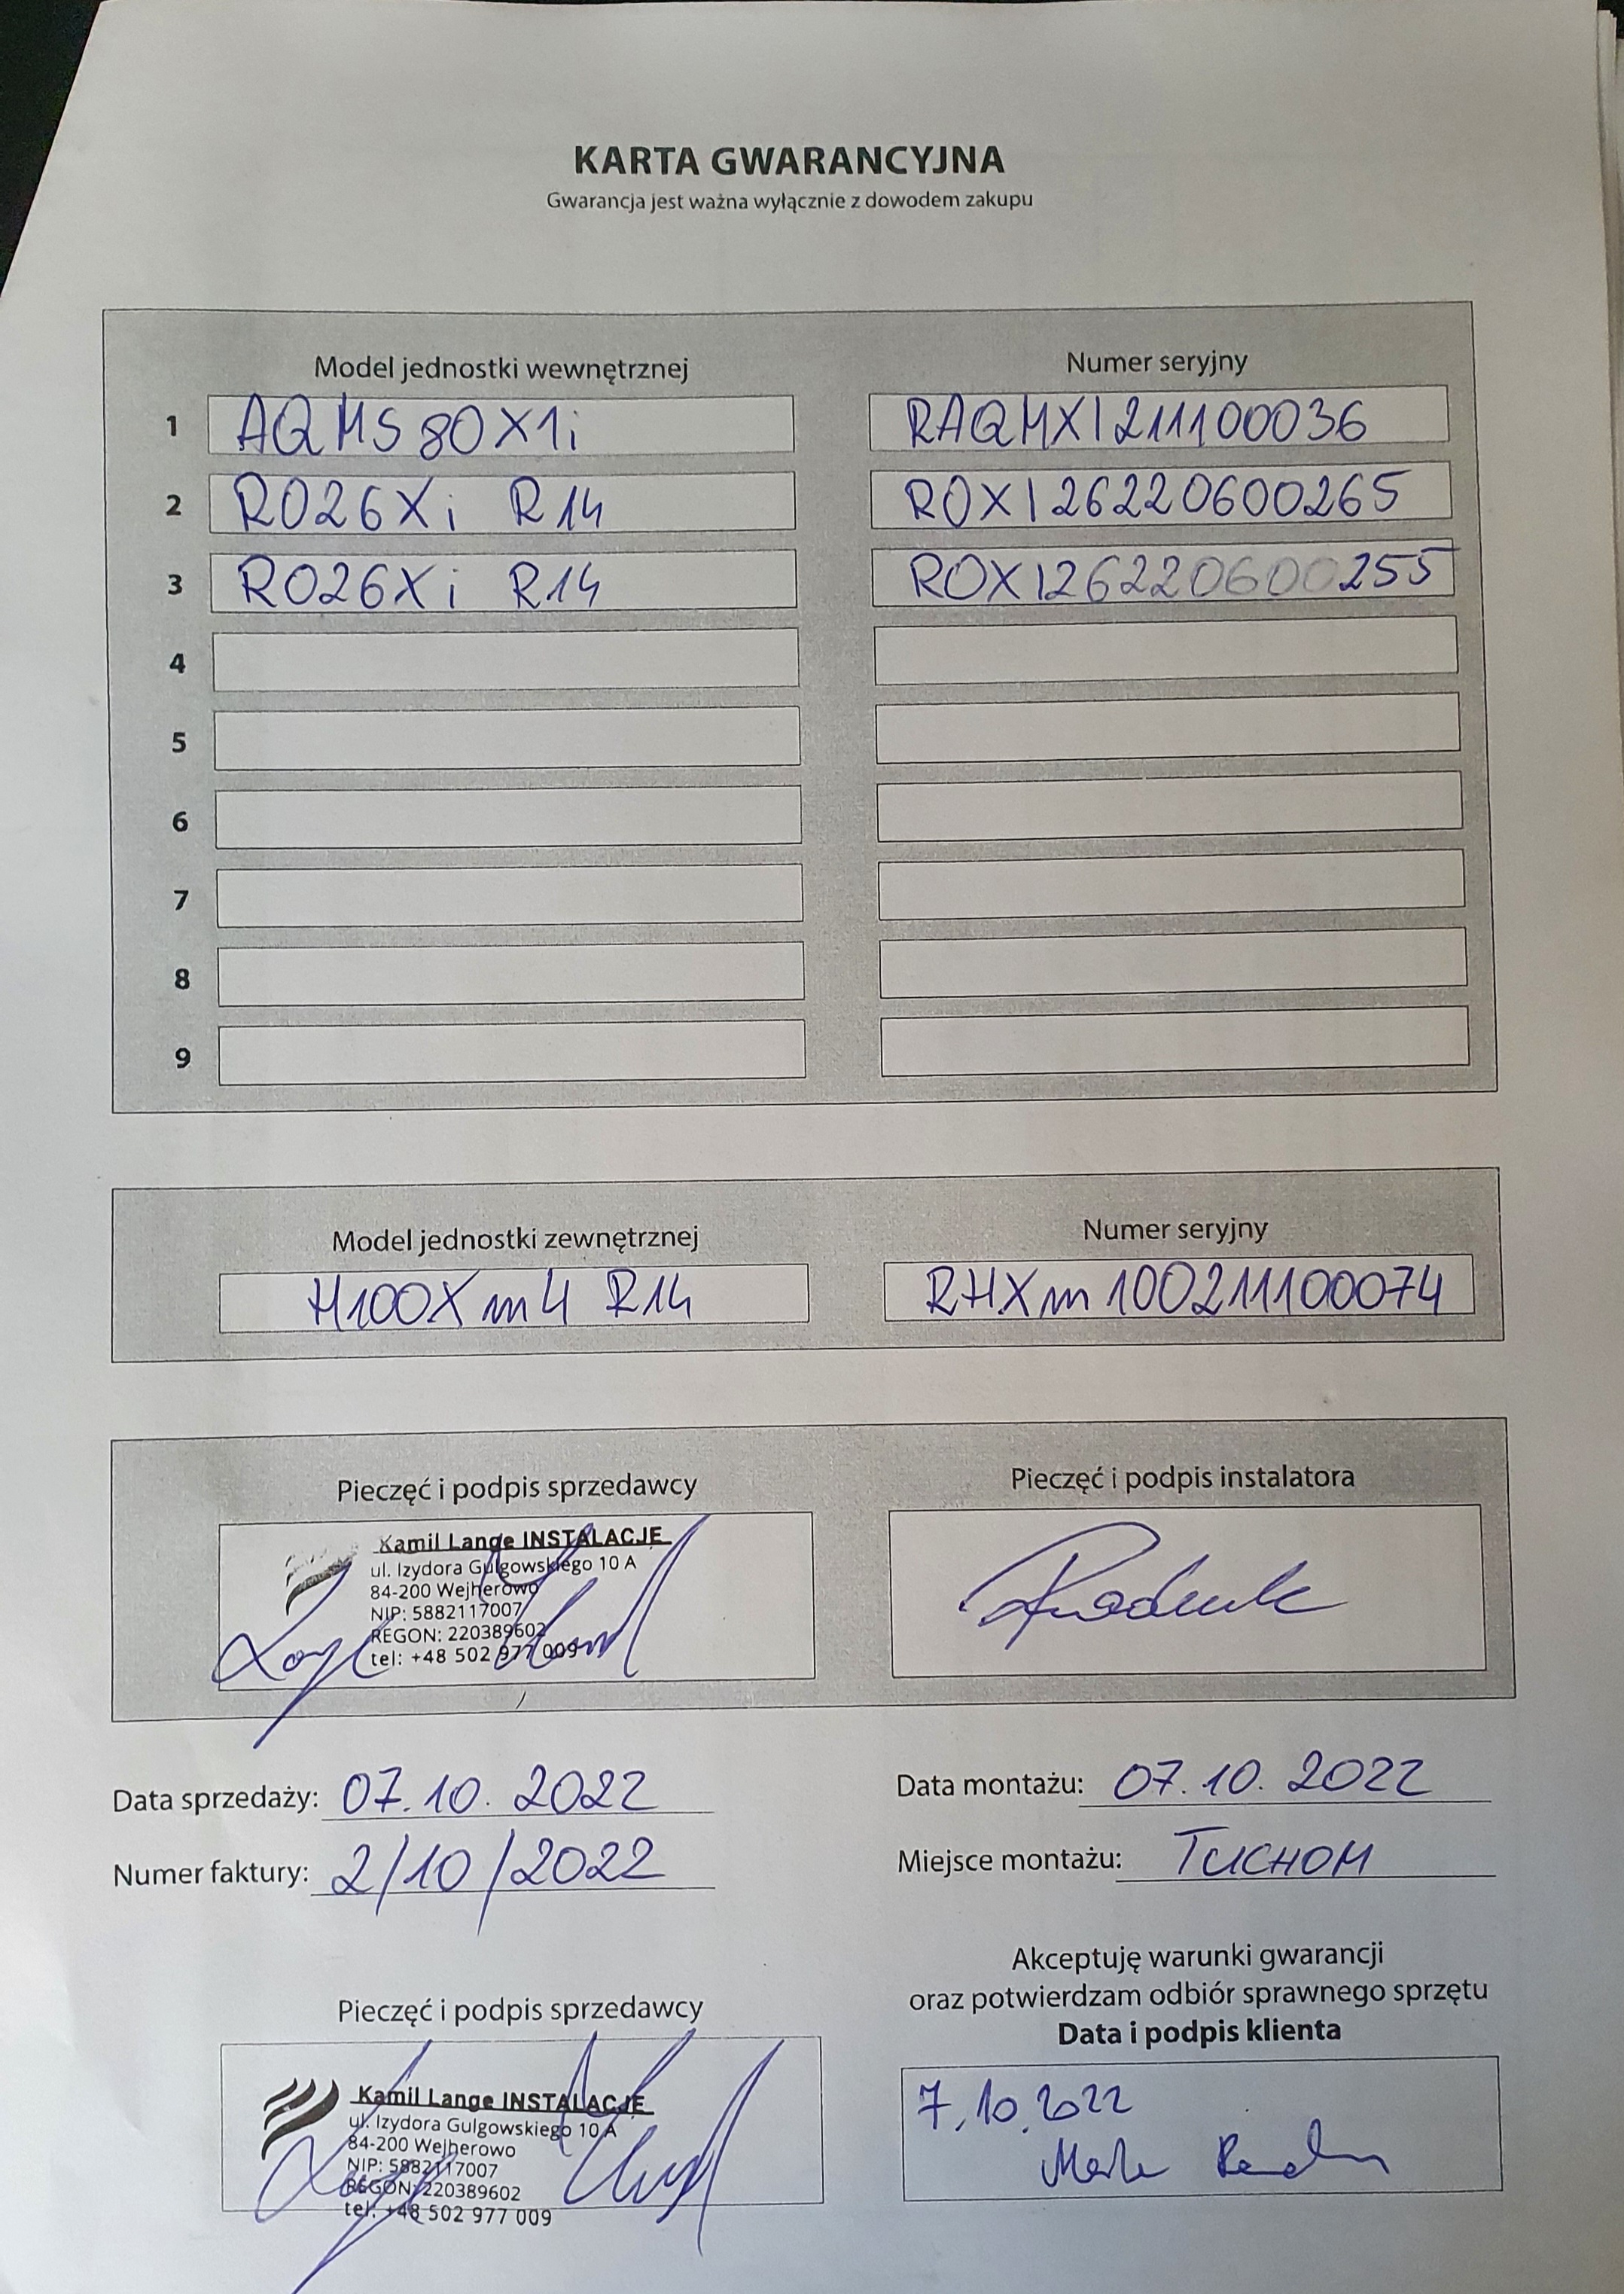 KARTA GWARANCYJNA
Gwarancja jest ważna wyłącznie z dowodem zakupu
Model jednostki wewnętrznej Numer seryjny
1 AQMS80X1i RAQMXI211100036
2 RO26Xi R14 ROXI26220600265
3 RO26Xi R14 ROXI26220600255
4
5
6
7
8
9
Model jednostki zewnętrznej Numer seryjny
H100Xm4 R14 RHXm100211100074
Pieczęć i podpis sprzedawcy Pieczęć i podpis instalatora
Kamil Lange INSTALACJE
ul. Izydora Gulgowskiego 10 A
84-200 Wejherowo
NIP: 5882117007
REGON: 220389602
tel: +48 502 977 009
Data sprzedaży: 07.10.2022 Data montażu: 07.10.2022
Numer faktury: 2/10/2022 Miejsce montażu: TUCHOM
Akceptuję warunki gwarancji
oraz potwierdzam odbiór sprawnego sprzętu
Pieczęć i podpis sprzedawcy Data i podpis klienta
Kamil Lange INSTALACJE
ul. Izydora Gulgowskiego 10 A
84-200 Wejherowo
NIP: 5882117007
REGON: 220389602
tel: +48 502 977 009
7.10.2022